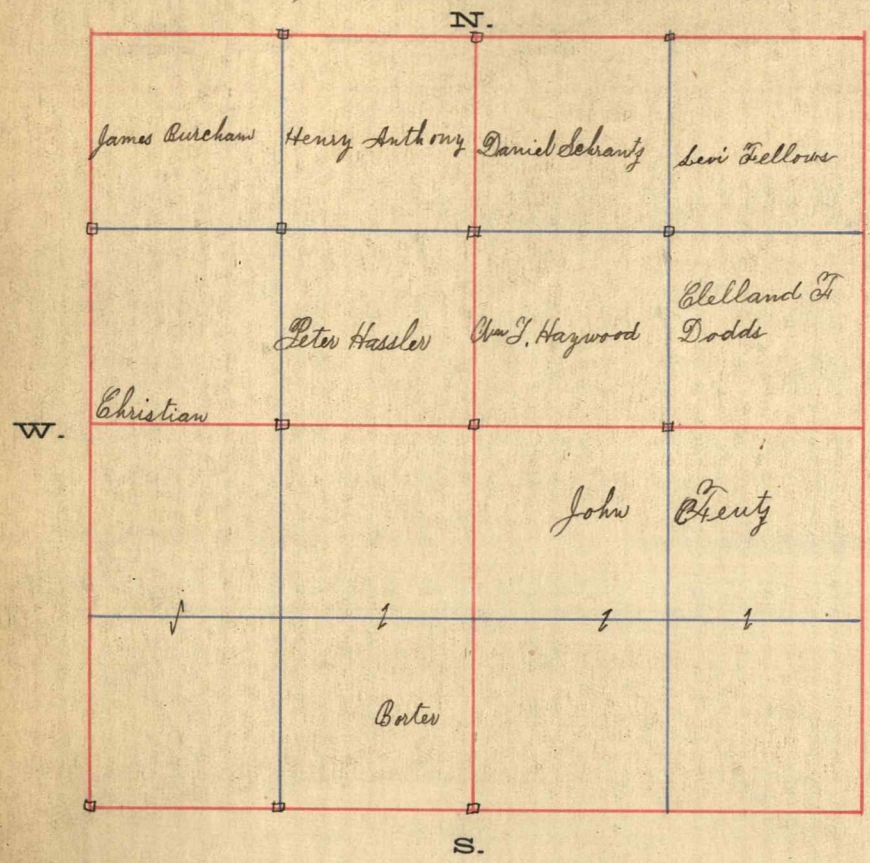 N.
James Burcham
Henry Anthony
Daniel Schrantz
Levi Fellows
Peter Hassler
T. Haywood
Clelland F
Dodds
Christian
W.
John
Feutz
Borter
S.